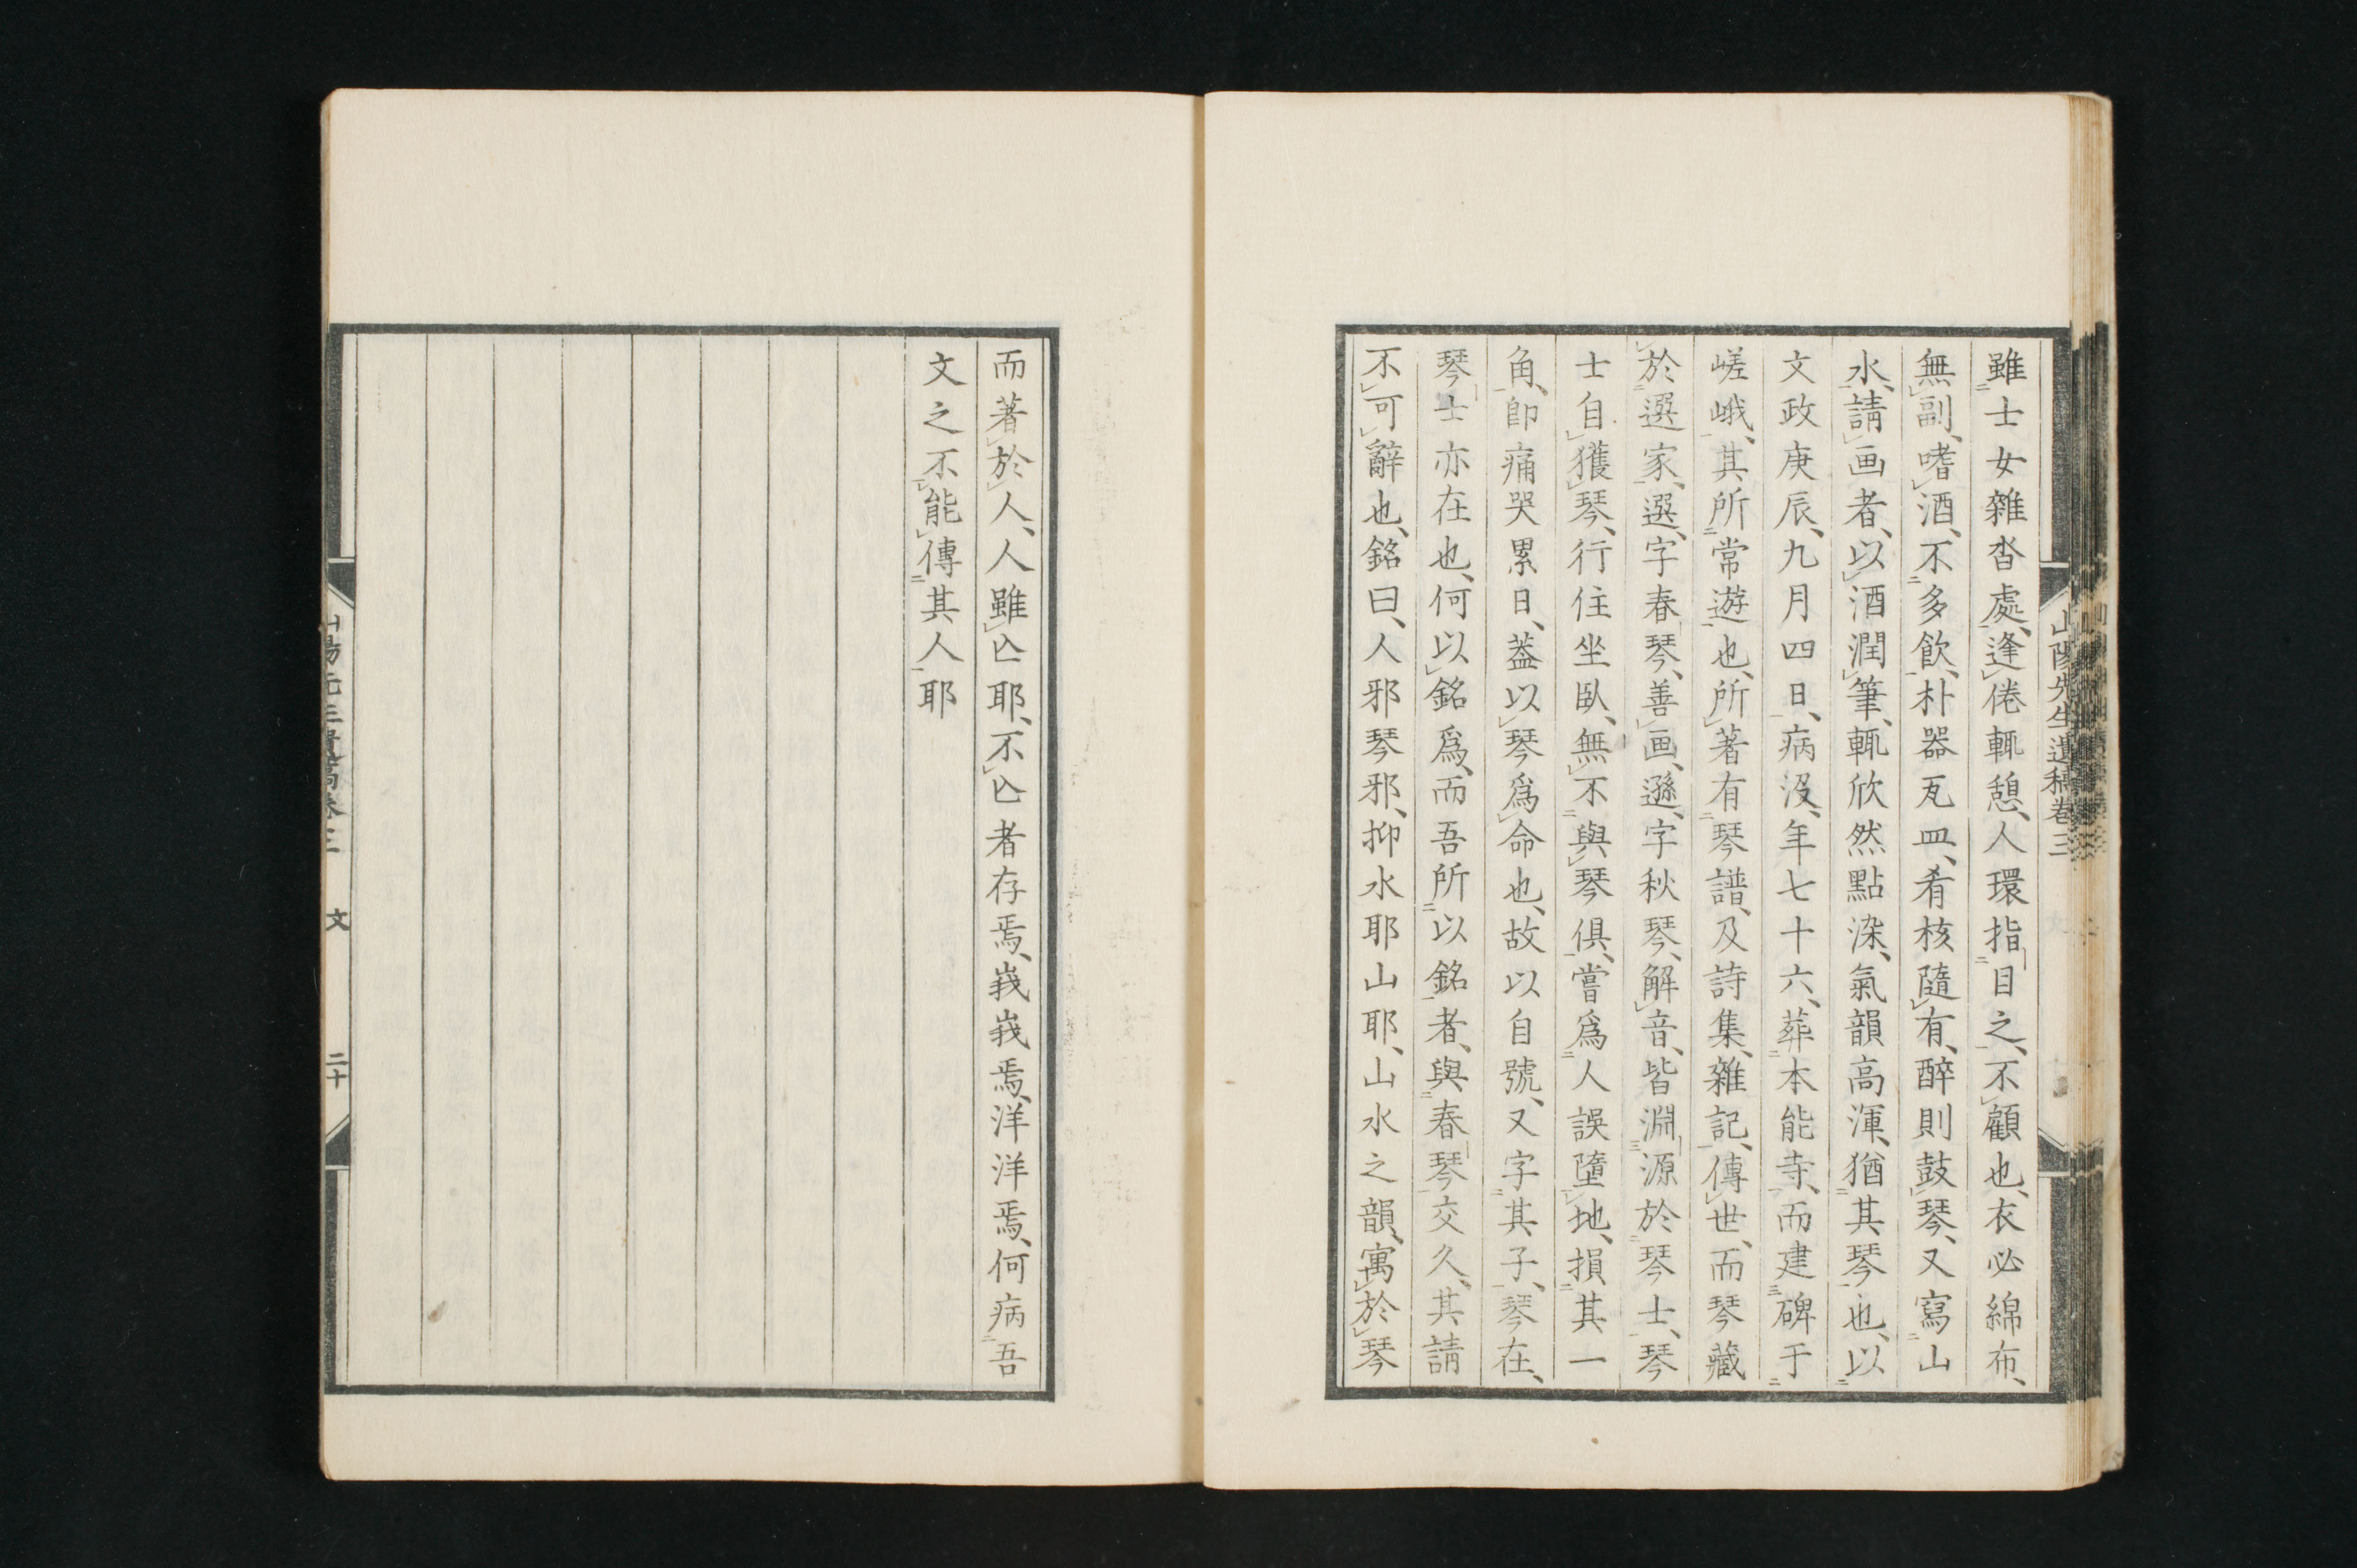 雖士女雜沓處、逢倦輒憩、人環指目之、不顧也、衣必綿布、
無副、嗜酒、不多飲、朴器瓦皿、肴核隨有、醉則鼓琴、又寫山
水、請画者、以酒潤筆、輒欣然點染、氣韻高渾、猶其琴也、以
文政庚辰、九月四日、病沒、年七十六、葬本能寺、而建碑于
嵯峨、其所常遊也、所著有琴譜、及詩集、雜記、傳世、而琴藏
於選家、選、字春琴、善画、遜、字秋琴、解音、皆淵源於琴士、琴
士自獲琴、行住坐臥、無不與琴俱、嘗爲人誤墮地、損其一
角、卽痛哭累日、葢以琴爲命也、故以自號、又字其子、琴在、
琴士亦在也、何以銘爲、而吾所以銘者、與春琴交久、其請
不可辭也、銘曰、人邪琴邪、抑水耶山耶、山水之韻、寓於琴
山陽先生遺稿卷三
而著於人、人雖亾耶、不亾者存焉、峩峩焉、洋洋焉、何病吾
文之不能傳其人耶
文
二十